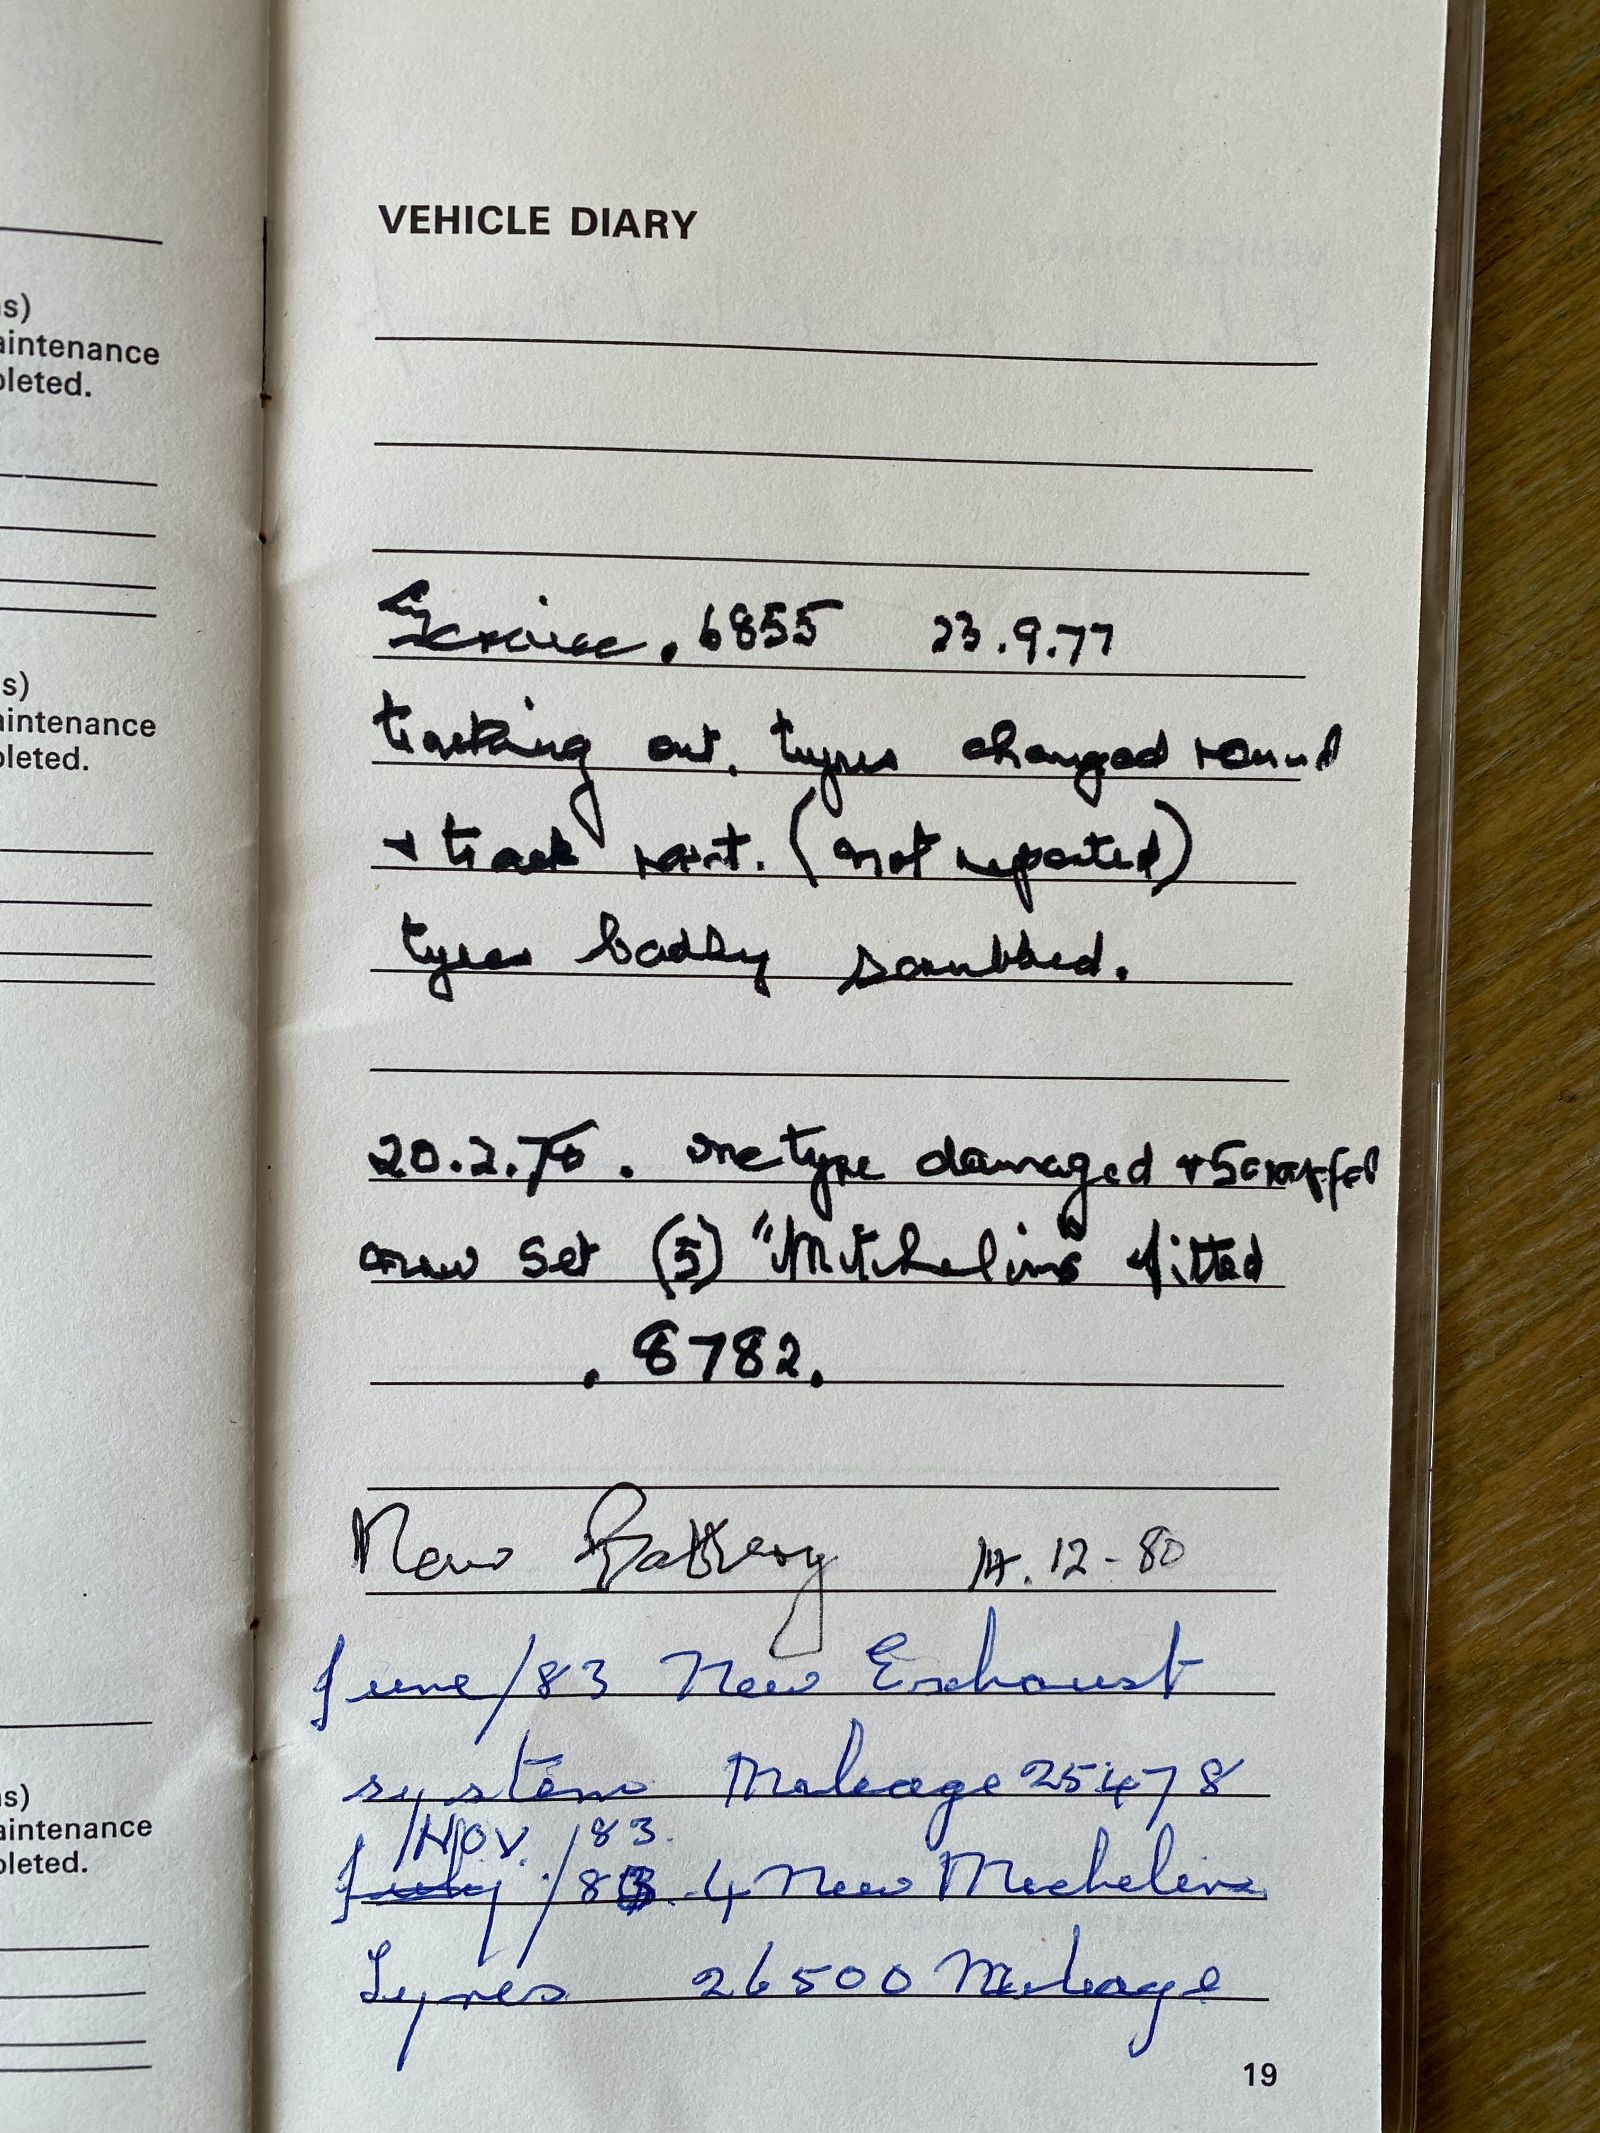 s)
aintenance
pleted.
s)
aintenance
pleted.
s)
aintenance
pleted.
VEHICLE DIARY
Service. 6855 23.9.77
tracking out. tyres changed round
+ track rect. (not reported)
tyres badly scrubbed.
20.2.78. one tyre damaged + Scrapped
new set (5) "Michelins" fitted
. 8782.
New Battery 14.12-80
June/83 New Exhaust
system Mileage 25478
/Nov. /83.
July /83. 4 New Michelin
Tyres 26500 Mileage
19